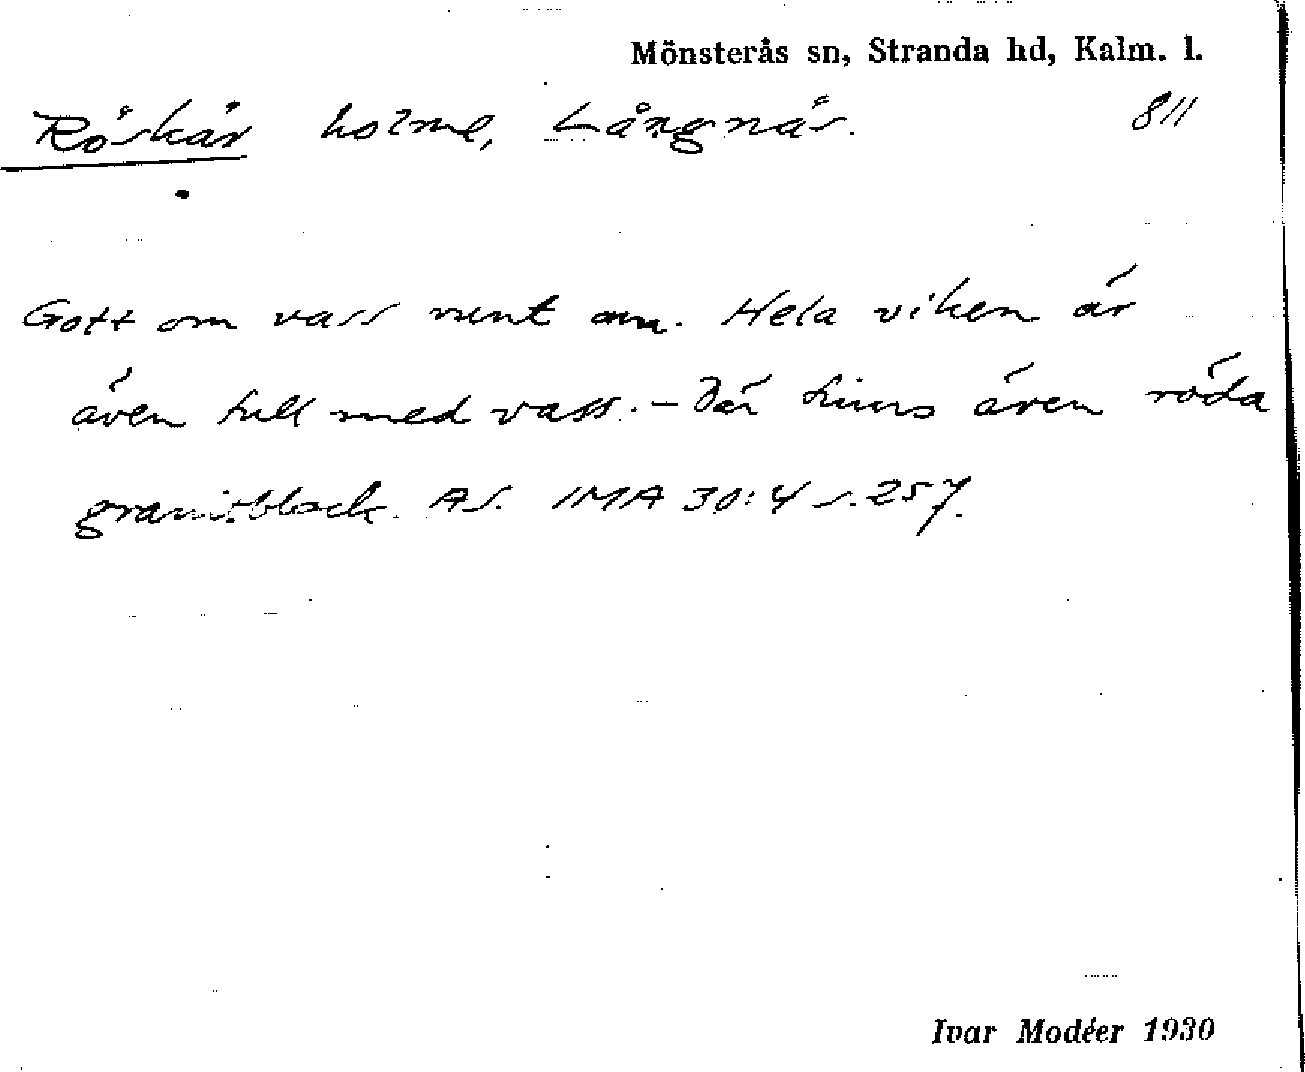 Mönsterås sn, Stranda hd, Kalm. l.
Röskär holme, Långnäs. 811
Gott om vass runt om. Hela viken är
även full med vass. – Där finns även röda
granitblock. AS. IMA 30:4 s. 257.
Ivar Modéer 1930